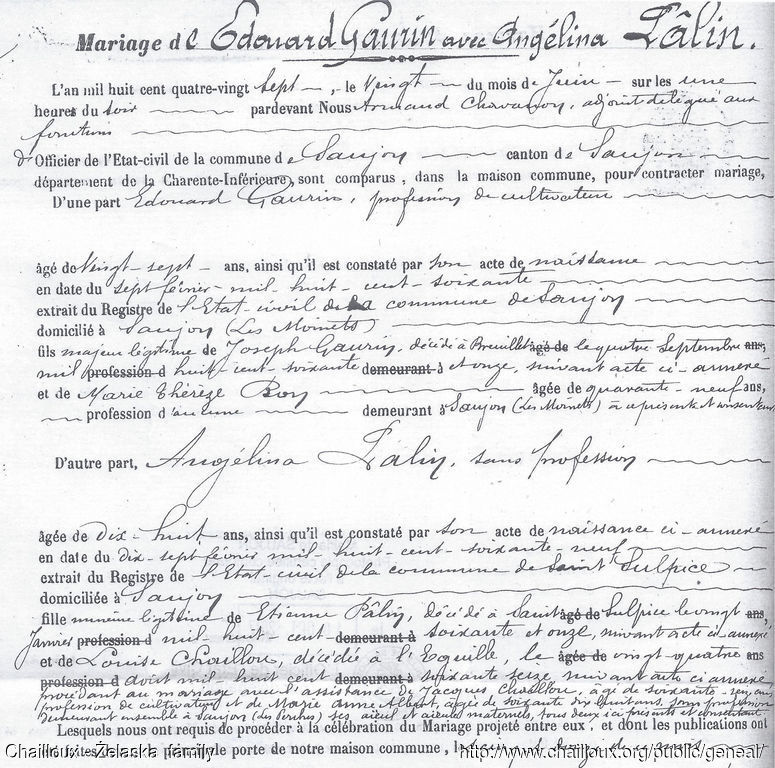 Mariage de Edouard Gaurin avec Angélina Pâlin.
L'an mil huit cent quatre-vingt sept, le vingt du mois de Juin sur les une
heure du soir pardevant Nous Armand Chavanon, adjoint délégué aux
fonctions
d'Officier de l'Etat-civil de la commune de Saujon canton de Saujon
département de la Charente-Inférieure, sont comparus, dans la maison commune, pour contracter mariage,
D'une part Edouard Gaurin, profession de cultivateur
âgé de vingt-sept ans, ainsi qu'il est constaté par son acte de naissance
en date du sept février mil-huit-cent-soixante
extrait du Registre de l'Etat-civil de la commune de Saujon
domicilié à Saujon (Les Moinets)
fils majeur légitime de Joseph Gaurin, décédé à Breuillet âgé de le quatre Septembre ans,
mil profession d huit-cent-soixante demeurant à et onze, suivant acte ci-annexé
et de Marie Thérèze Bon âgée de quarante-neuf ans,
profession d'aucune demeurant à Saujon (Les Moinets) à ce présente et consentant
D'autre part, Angélina Pâlin, sans profession
âgée de dix-huit ans, ainsi qu'il est constaté par son acte de naissance ci-annexé
en date du dix-sept février mil-huit-cent-soixante-neuf
extrait du Registre de l'Etat-civil de la commune de Saint Sulpice
domiciliée à Saujon
fille mineure légitime de Etienne Pâlin, décédé à Saint âgé de Sulpice le vingt ans,
Janvier profession d mil huit-cent demeurant à soixante et onze, suivant acte ci annexé
et de Louise Chouillou, décédée à l'Eguille, le âgée de vingt-quatre ans
profession d août mil huit cent demeurant à soixante seize, suivant acte ci annexé
procédant au mariage avec l'assistance de Jacques Chouillou, âgé de soixante ans,
profession de cultivateur et de Marie Anne Albert, âgée de soixante dix huit ans, sans profession
demeurant ensemble à Saujon ses aïeul et aïeule maternels, tous deux ici présents et consentant
Lesquels nous ont requis de procéder à la célébration du Mariage projeté entre eux, et dont les publications ont
été faites devant la principale porte de notre maison commune,
Chailloux - Żelaska family
http://www.chailloux.org/public/geneal/